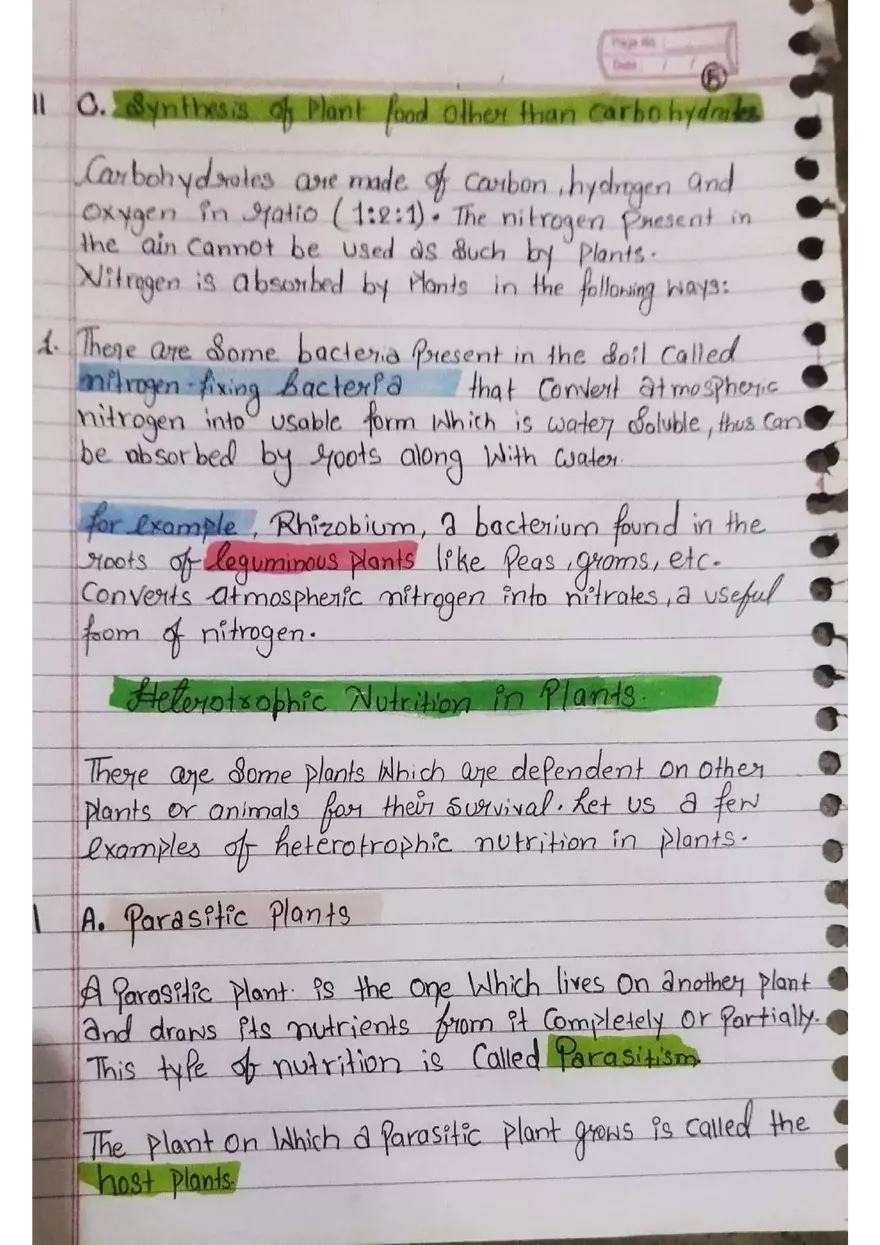 Page No.
Date / /
6
11 C. Synthesis of Plant food other than carbohydrates
Carbohydrates are made of carbon, hydrogen and
oxygen in ratio (1:2:1). The nitrogen Present in
the air cannot be used as such by Plants.
Nitrogen is absorbed by Plants in the following ways:
1. There are Some bacteria Present in the Soil Called
nitrogen-fixing Bacteria that Convert atmospheric
nitrogen into usable form Which is water Soluble, thus Can
be absorbed by roots along With water.
for example, Rhizobium, a bacterium found in the
roots of leguminous plants like Peas, groms, etc.
Converts atmospheric nitrogen into nitrates, a useful
foom of nitrogen.
Heterotrophic Nutrition in Plants.
There are Some plants Which are dependent on other
plants or animals for their survival. Let us a few
examples of heterotrophic nutrition in plants.
1 A. Parasitic Plants
A Parasitic plant is the one Which lives On another plant
and draws its nutrients from it Completely or Partially.
This type of nutrition is Called Parasitism
The plant on Which a Parasitic plant grows is called the
host plants.